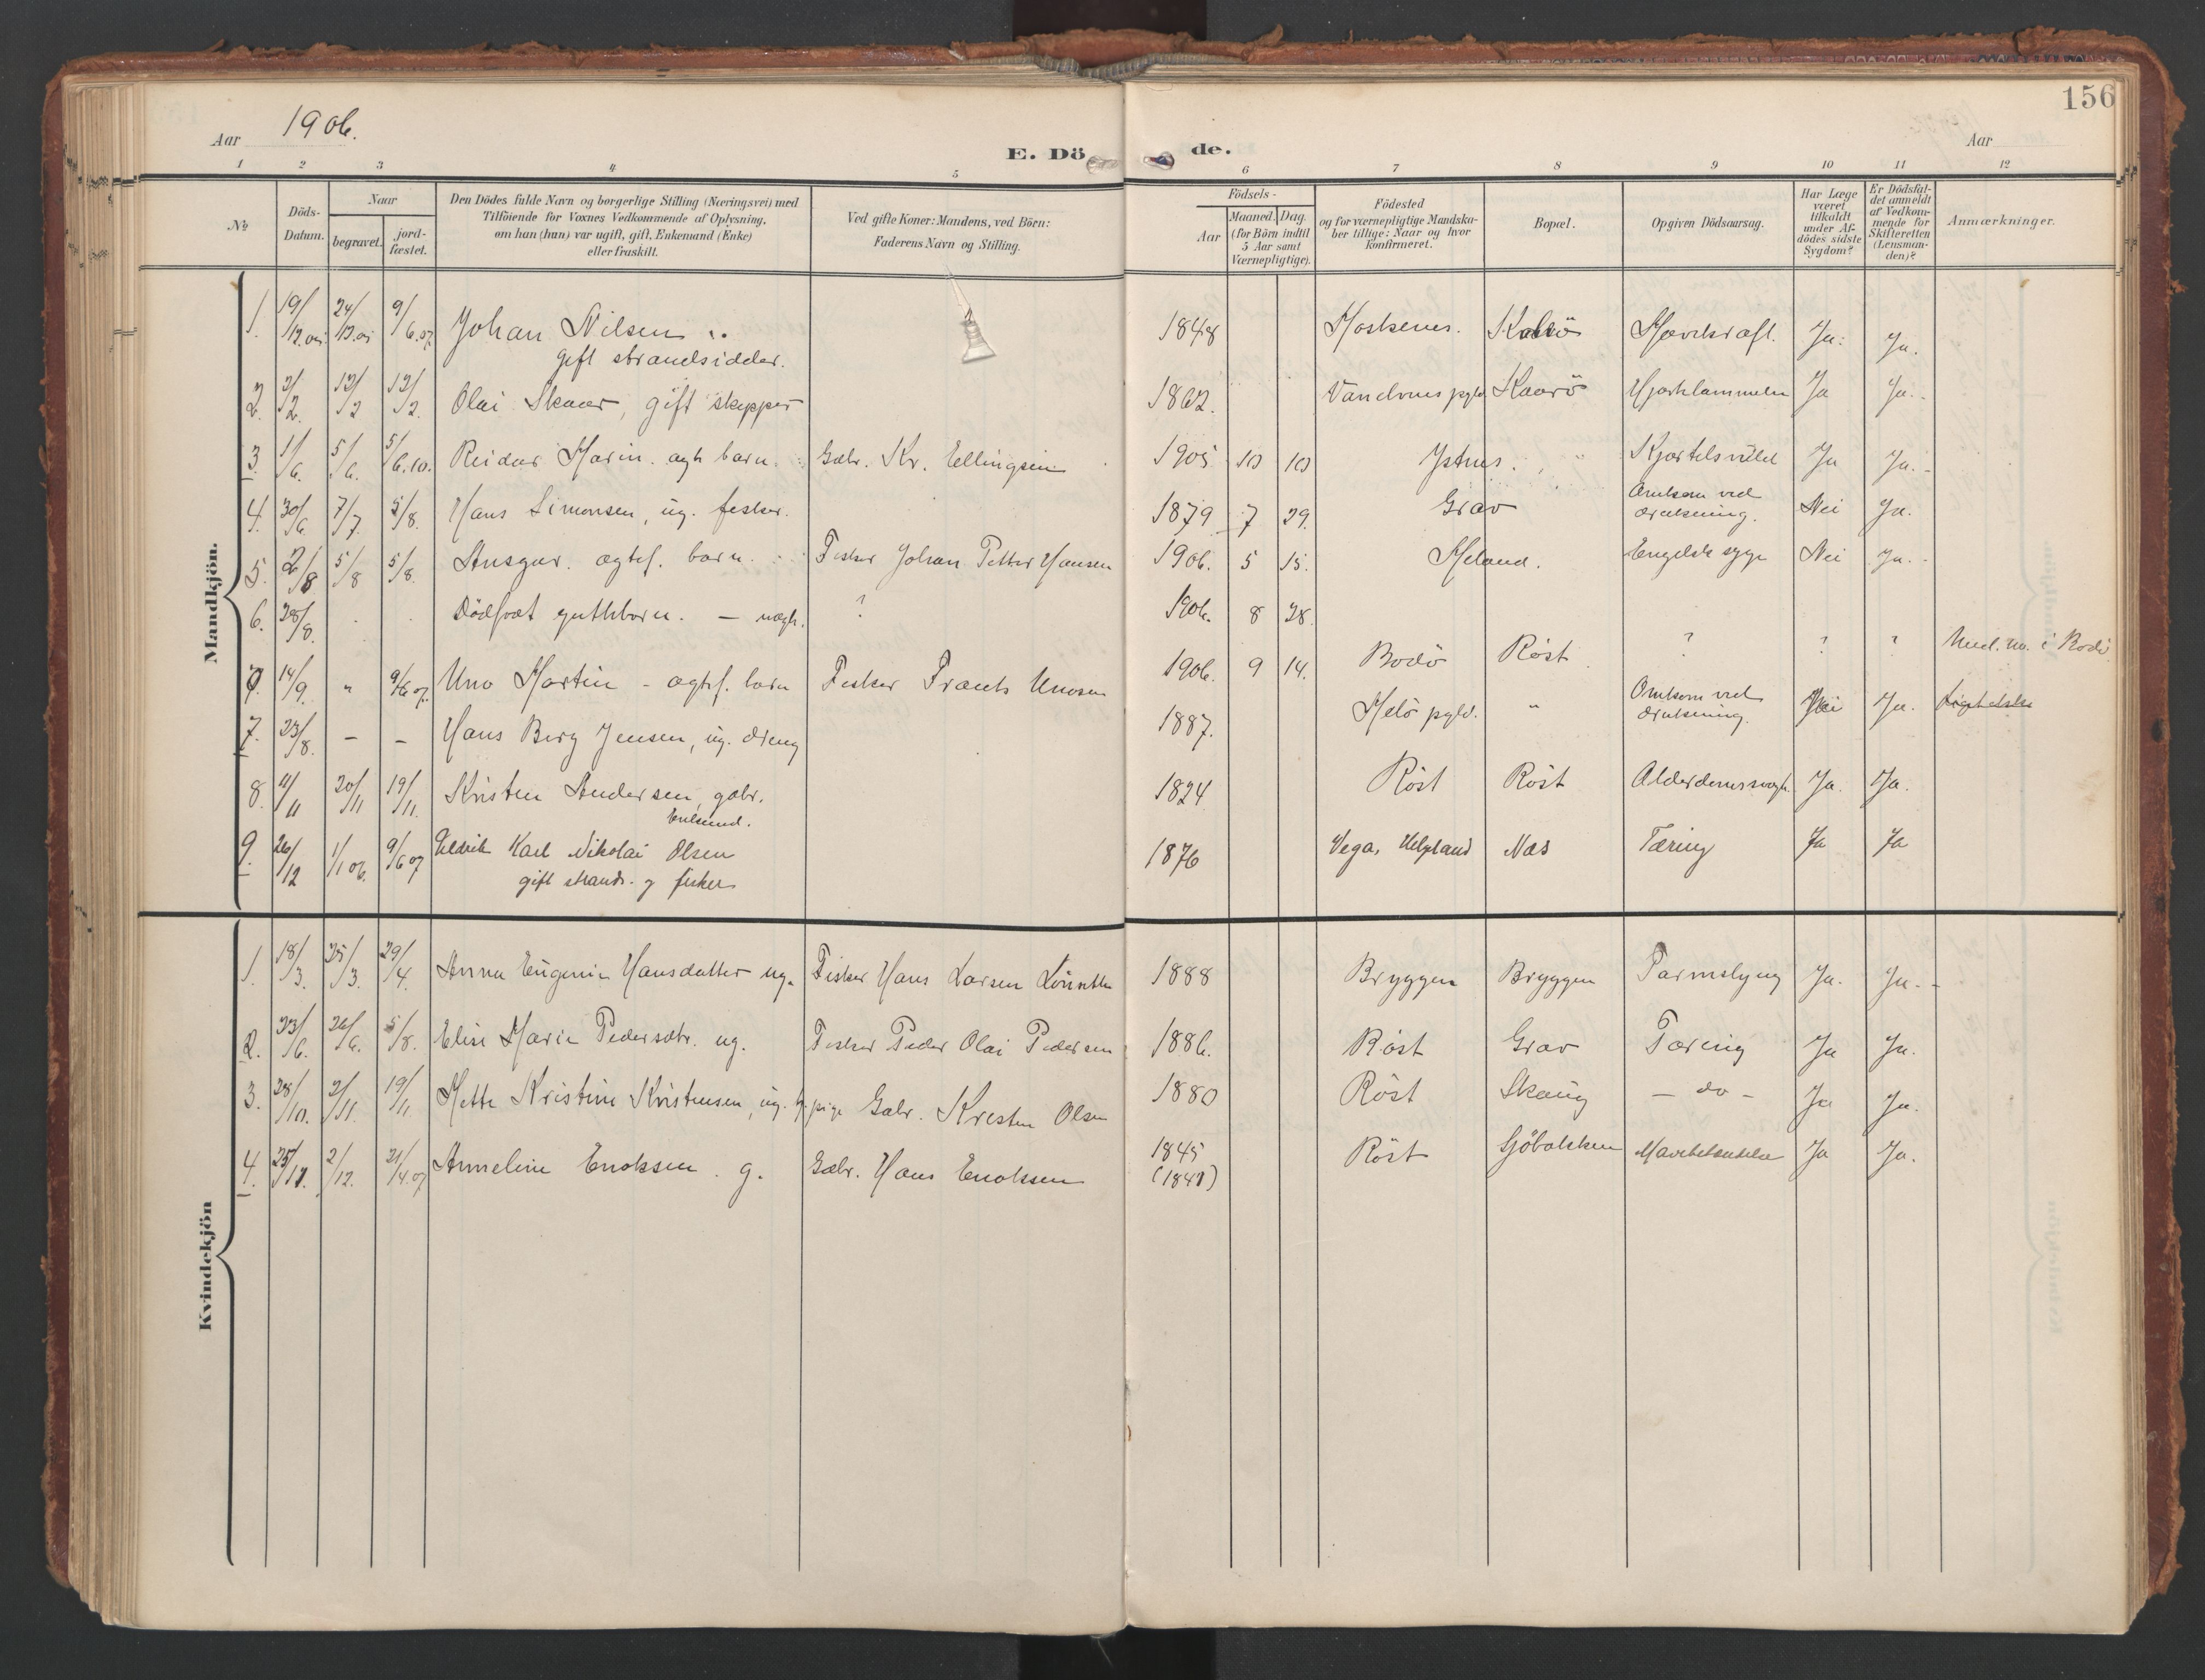 156
Aar 1906.
Aar
E. Dö de.
1 2 3 4 5 6 7 8 9 10 11 12
No
Döds-Datum.
Naar
begravet.
jord-fæstet.
Den Dödes fulde Navn og borgerlige Stilling (Næringsvei) med
Tilföiende for Voxnes Vedkommende af Oplysning,
om han (hun) var ugift, gift, Enkemand (Enke)
eller fraskilt.
Ved gifte Koner: Mandens, ved Börn:
Faderens Navn og Stilling.
Födsels-
Aar
Maaned. Dag.
(for Börn indtil
5 Aar samt
Værnepligtige).
Födested
og for værnepligtige Mandska-
ber tillige: Naar og hvor
konfirmeret.
Bopæl.
Opgiven Dödsaarsag.
Har Læge
været
tilkaldt
under Af-
dödes sidste
Sygdom?
Er Dödsfal-
det anmeldt
af Vedkom-
mende for
Skifteretten
(Lensman-
den)?
Anmærkninger.
Mandkjön.
1. 19/12.05 24/12.05 9/6.07 Johan Nilsen 1848 Moskenes. Kaarö Mavekræft. Ja. Ja.
gift strandsidder.
2. 2/2. 12/2 12/2. Olai Skaar, gift skipper 1862. Kaarö Ja Ja.
3. 1/6. 5/6. 5/6.10. Reidar Marin. ægte barn. Gbr. Kr. Ellingsen 1905 10 10 Ystnes. Ja Ja.
4. 30/6 7/7. 5/8. Hans Simonsen, ug. fisker. 1879 7 29. Grav Omkom ved
drukning. Nei Ja.
5. 2/8 5/8 5/8. Ansgar. ægtef. barn. Fisker Johan Petter Hansen 1906. 5 15. Heland. Engelsk syge Nei Ja.
6. 28/8. Dödfødt gutbarn. — uægte. ? 1906. 8 28.
7. 14/9. " 9/6 07. Uno Martin - ægtef. barn Fisker Frants Unosen 1906. 9 14. Bodö Röst ? ? ? Med. nr. i Bodö
7. 23/8. – – Hans Berg Jensen, ug. dreng 1887. Melö pgld. " Omkom ved
drukning. Nei Ja.
8. 11/11 20/11 19/11. Kristen Andersen, gbr. 1824 Röst Röst Ja. Ja.
Enkemd.
9. 26/12 1/1 06. 9/6 07 Karl Nikolai Olsen 1876 Vega, Helgeland Nes Tæring Ja Ja
gift strands. og fisker
Kvindekjön
1. 18/3. 25/3. 29/4. Anna Eugenie Hansdatter ug. Fisker Hans Larsen 1888 Bryggen Bryggen Tarmslyng Ja. Ja.
2. 23/6. 26/6. 5/8. Elise Marie Pedersdtr. ug. Fisker Peder Olai Pedersen 1886. Röst Grav Tæring Ja Ja.
3. 28/10. 2/11. 19/11. Mette Kristine Kristensen, ug. tj. pige Gbr. Kristen Olsen 1880 Röst Skaug – do – Ja Ja.
4. 25/11. 2/12. 21/4.07 Anneline Enoksen. g. Gbr. Hans Enoksen 1845 Röst Ja Ja.
(1841)